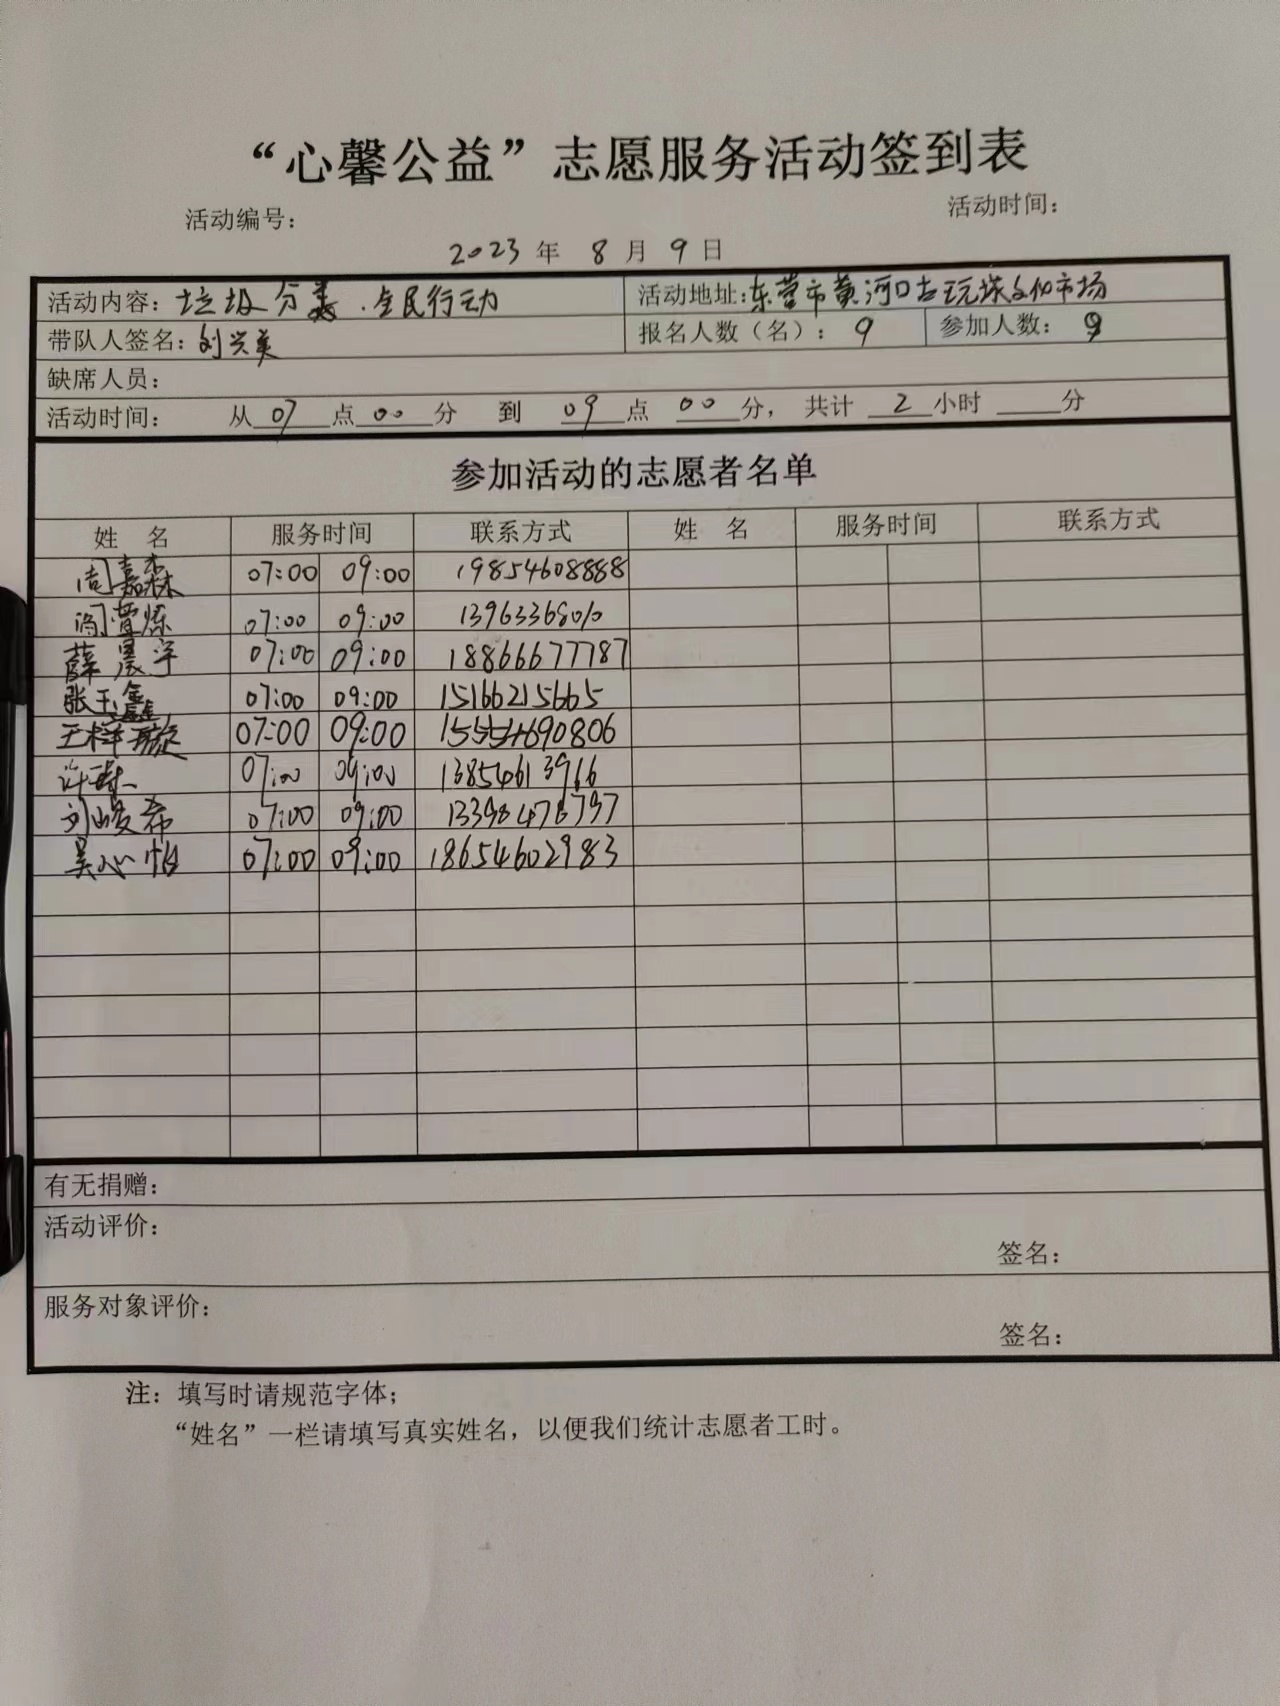 “心馨公益”志愿服务活动签到表
活动编号： 活动时间：
2023 年 8 月 9 日
活动内容：垃圾分类.全民行动 活动地址：东营市黄河口古玩城文化市场
带队人签名：刘兴美 报名人数（名）：9 参加人数：9
缺席人员：
活动时间： 从 07 点 00 分 到 09 点 00 分， 共计 2 小时 分
参加活动的志愿者名单
姓 名 服务时间 联系方式 姓 名 服务时间 联系方式
周嘉森 07:00 09:00 19854608888
07:00 09:00
薛晨宇 07:00 09:00 18866677787
张玉鑫 07:00 09:00 15166215665
07:00 09:00
07:00 09:00
刘峻希 07:00 09:00
吴心怡 07:00 09:00 18654602983
有无捐赠：
活动评价：
签名：
服务对象评价：
签名：
注：填写时请规范字体；
“姓名”一栏请填写真实姓名，以便我们统计志愿者工时。